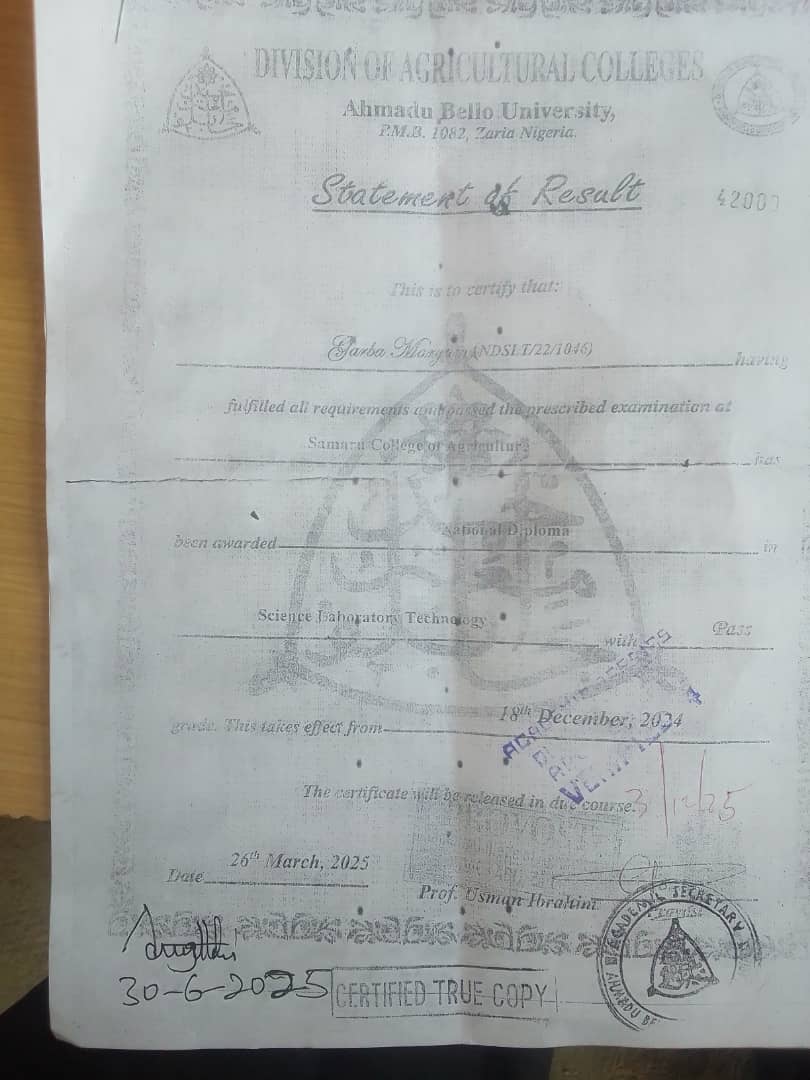 DIVISION OF AGRICULTURAL COLLEGES
Ahmadu Bello University,
P.M.B. 1082, Zaria Nigeria.
Statement of Result
This is to certify that:
Garba (NDSLT/22/1046) having
fulfilled all requirements and passed the prescribed examination at
Samaru College of Agriculture has
been awarded National Diploma in
Science Laboratory Technology with Pass
grade. This takes effect from 18th December, 2024
The certificate will be released in due course.
3/12/25
Date 26th March, 2025
Prof. Usman Ibrahim
30-6-2025
CERTIFIED TRUE COPY
SECRETARY
AHMADU